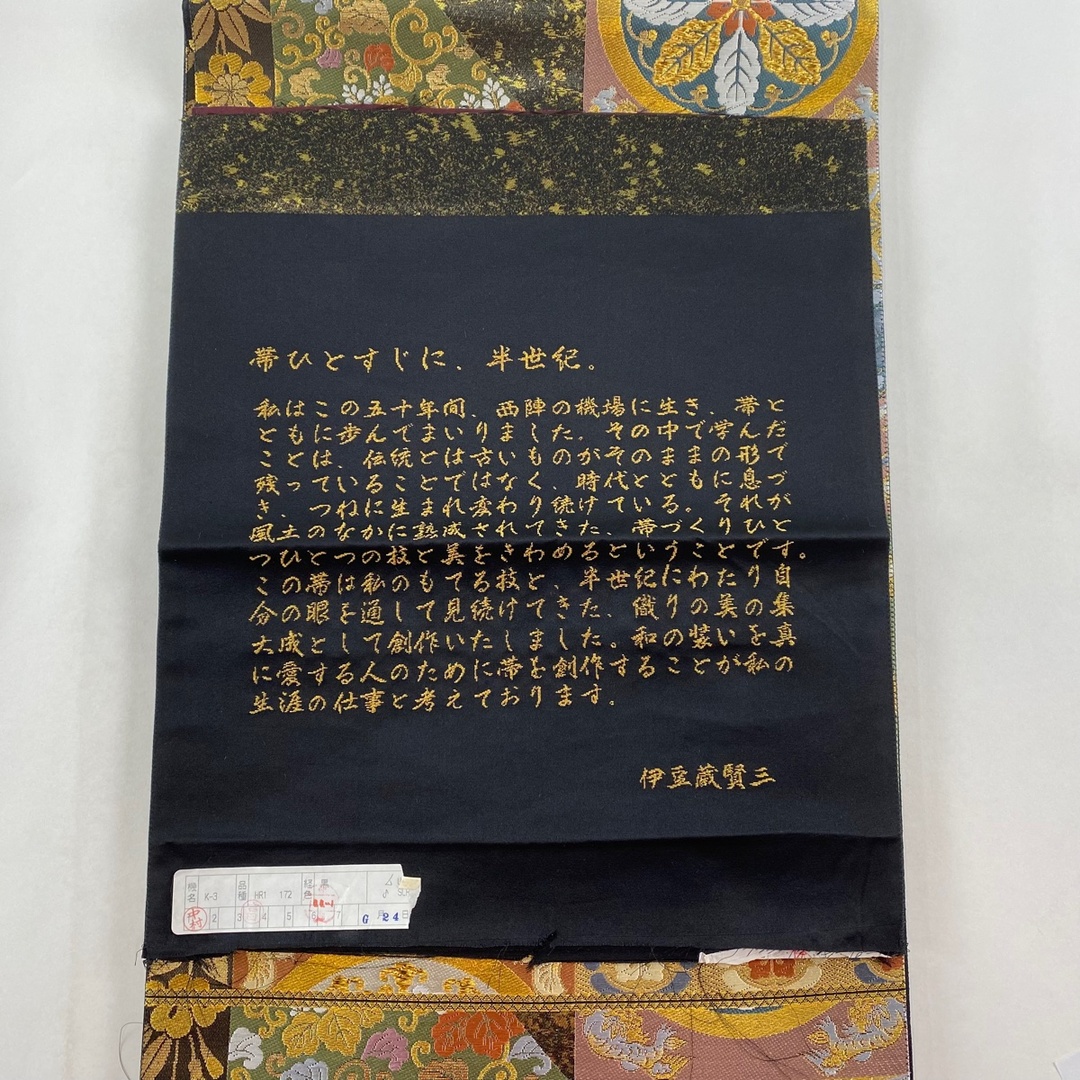 帯ひとすじに、半世紀。
私はこの五十年間、西陣の機場に生き、帯と
ともに歩んでまいりました。その中で学んだ
ことは、伝統とは古いものがそのままの形で
残っていることではなく、時代とともに息づ
き、つねに生まれ変わり続けている。それが
風土のなかに熟成されてきた、帯づくりひと
つひとつの技と美をきわめるということです。
この帯は私のもてる技と、半世紀にわたり自
分の眼を通して見続けてきた、織りの美の集
大成として創作いたしました。和の装いを真
に愛する人のために帯を創作することが私の
生涯の仕事と考えております。
伊豆蔵賢三
機名 K-3 品種 HR1 172 経色 黒
中村 2 3 4 5 6 7 G 月 24日